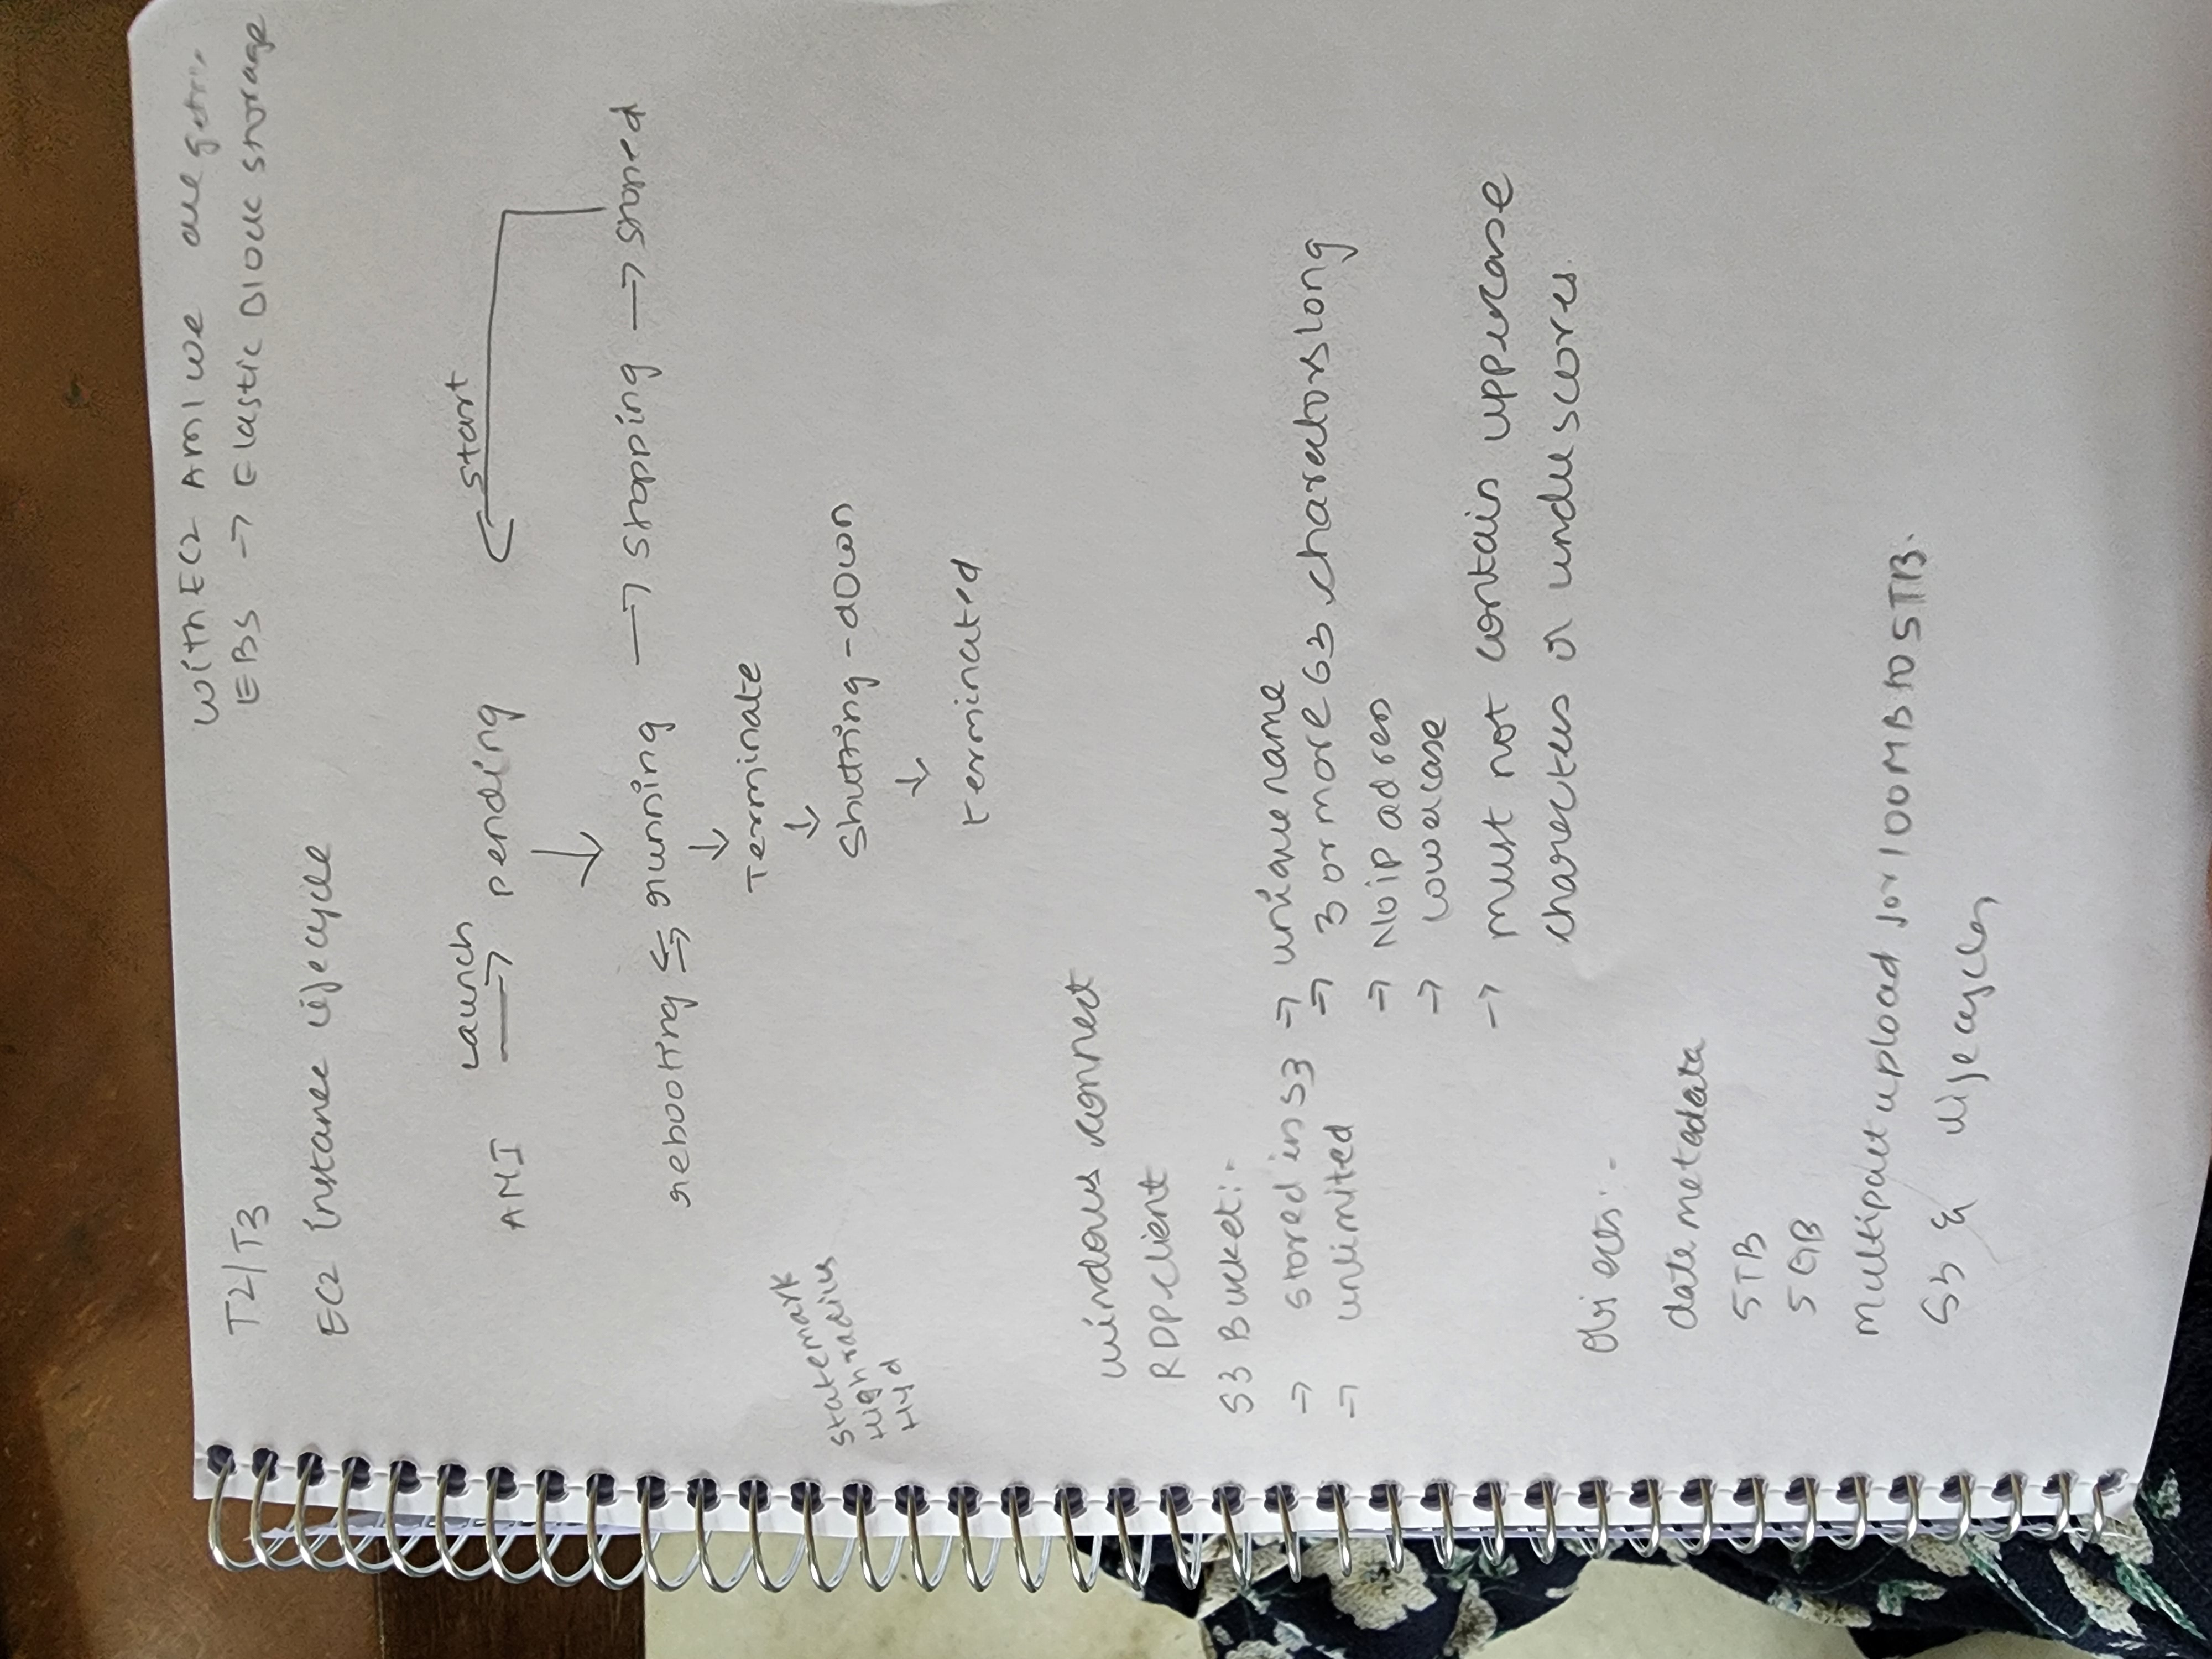 with EC2 AMI we are
EBS → Elastic Block storage
T2/T3
EC2 instance lifecycle
AMI Launch → pending
start
rebooting ⇆ running → stopping → stoped
Terminate
Shutting-down
terminated
Statemark
Highradius
Hyd
windows connect
RDP client
S3 Bucket:-
→ stored in S3 → unique name
→ unlimited → 3 or more 63 charectors long
→ No ip adress
→ lowercase
→ must not contain uppercase
charecters or underscores.
Objects:-
date metadata
5TB
5GB
multipart upload for 100MB to 5TB.
S3 & lifecycles